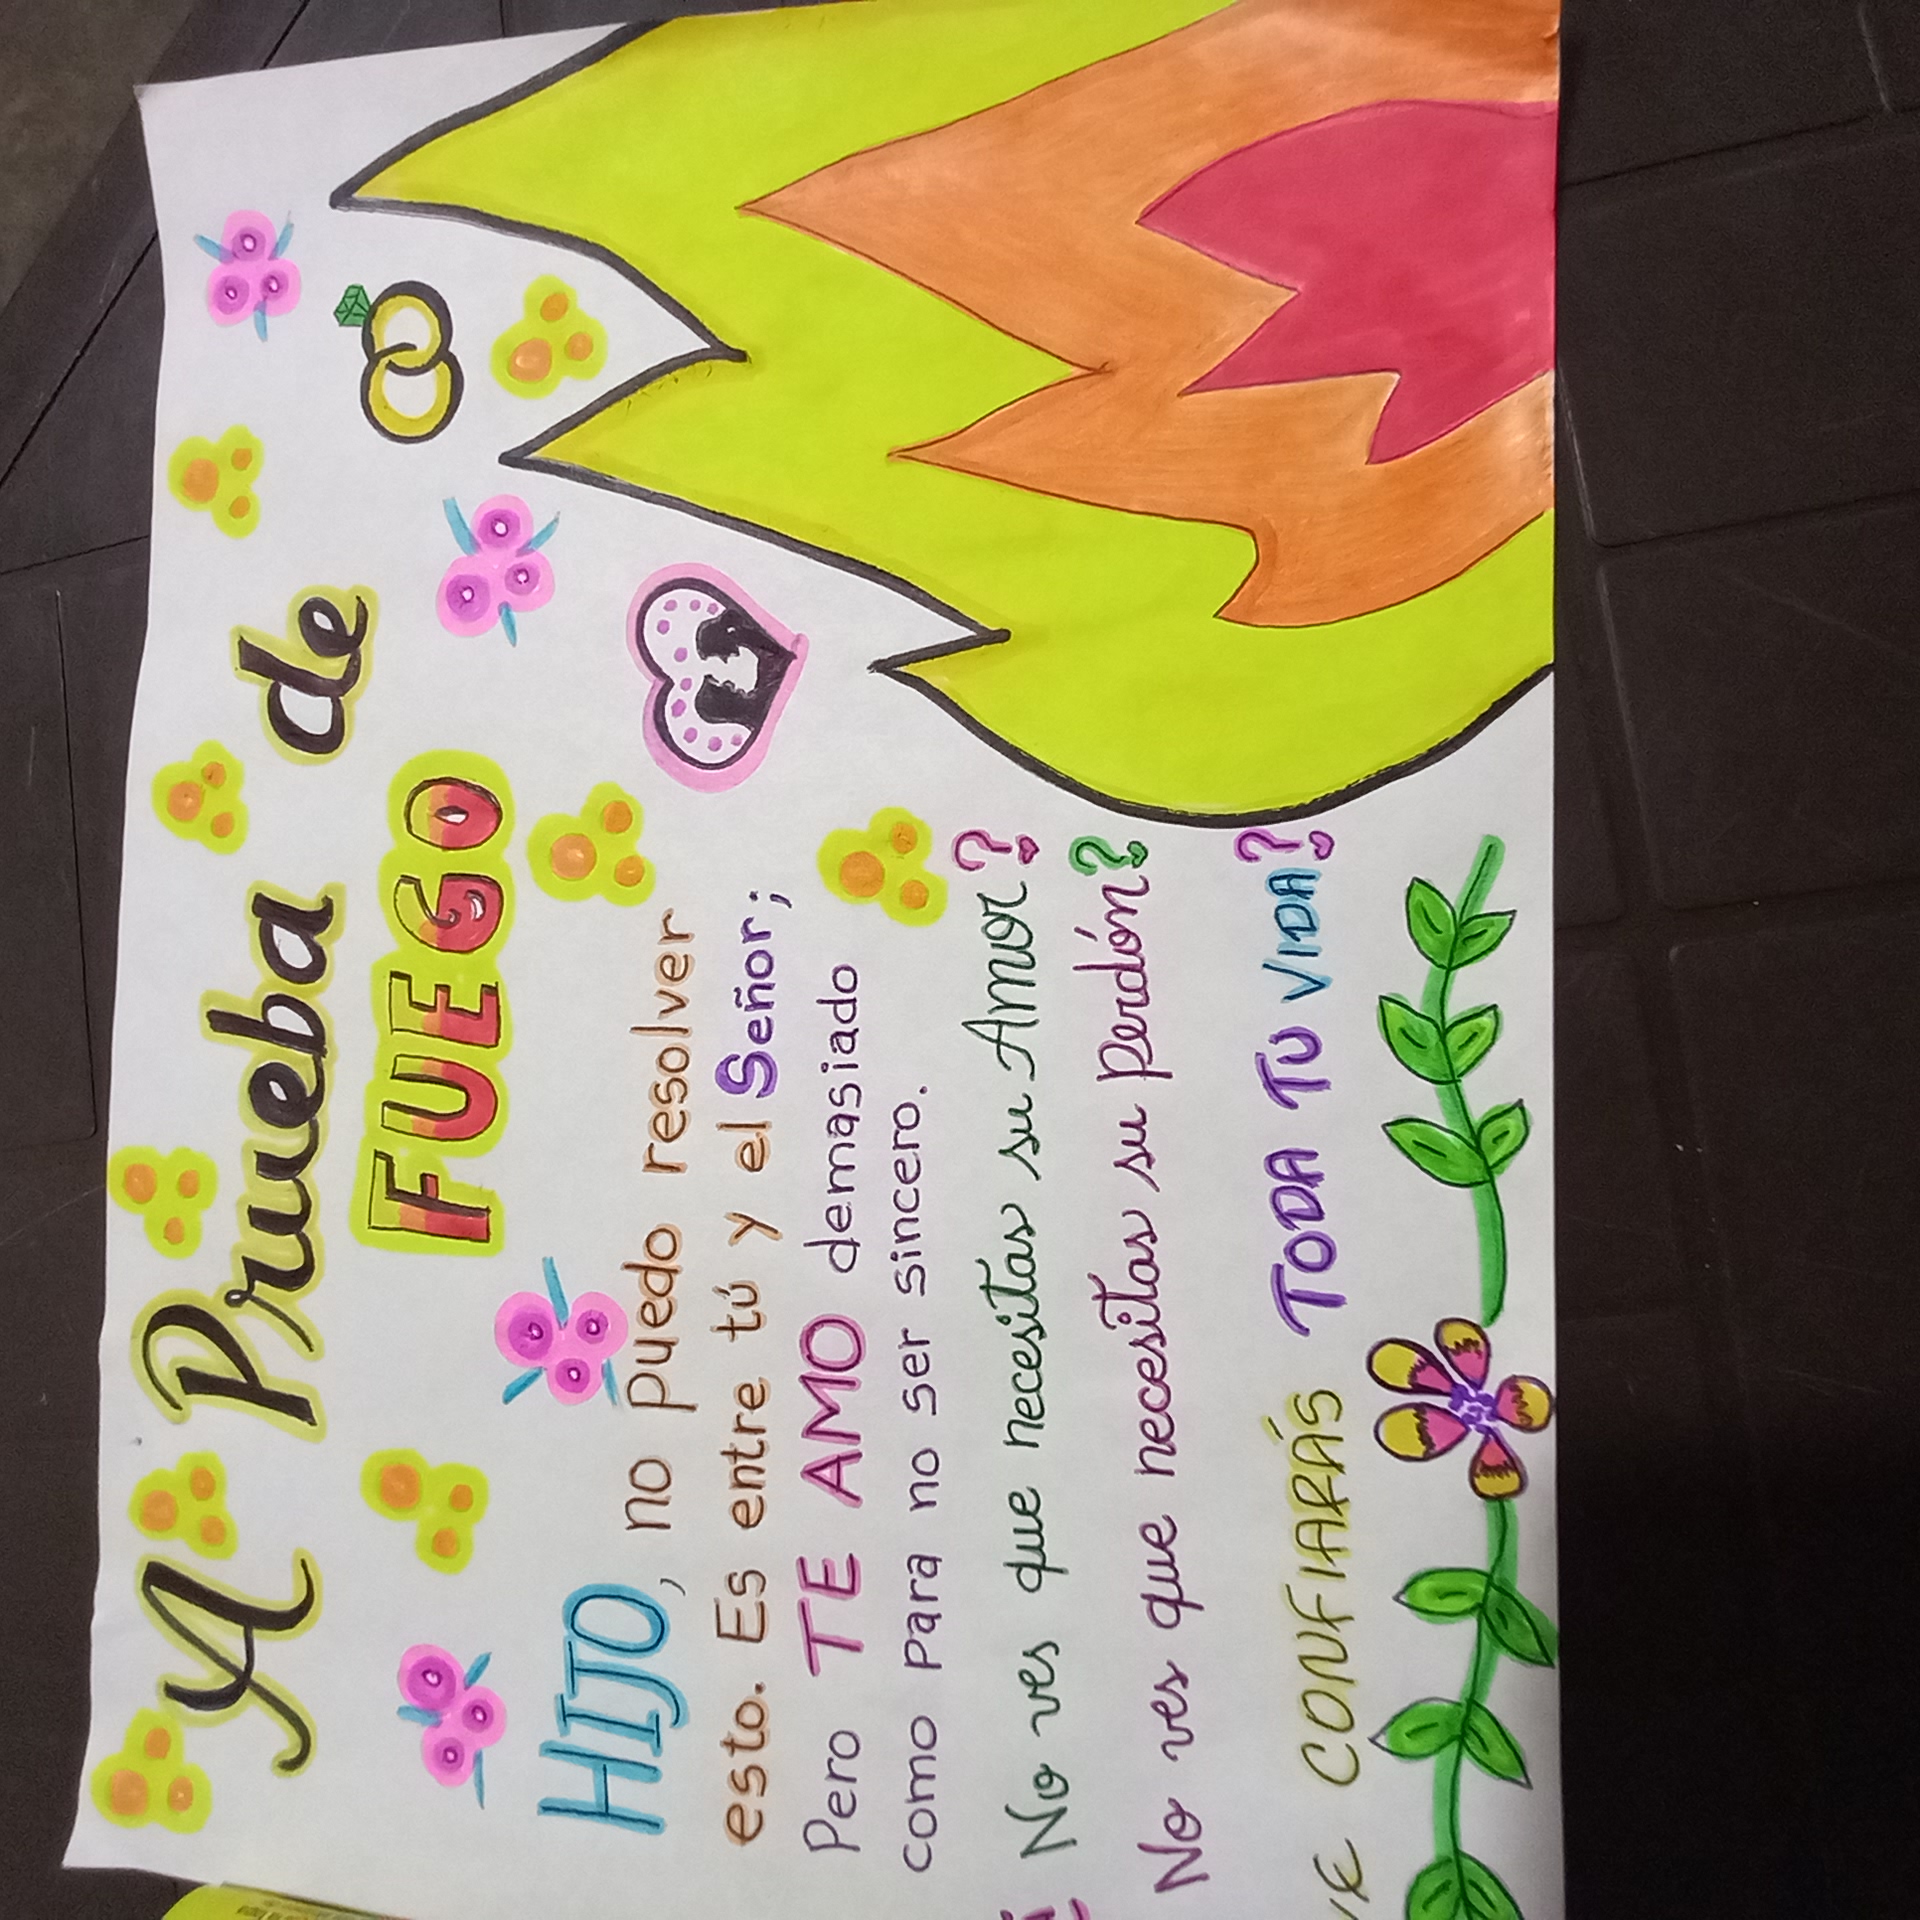 A Prueba de
FUEGO
HIJO, no puedo resolver
esto. Es entre tú y el Señor;
Pero TE AMO demasiado
como para no ser sincero.
No ves que necesitas su Amor?
No ves que necesitas su perdón?
CONFIARÁS TODA TU VIDA?